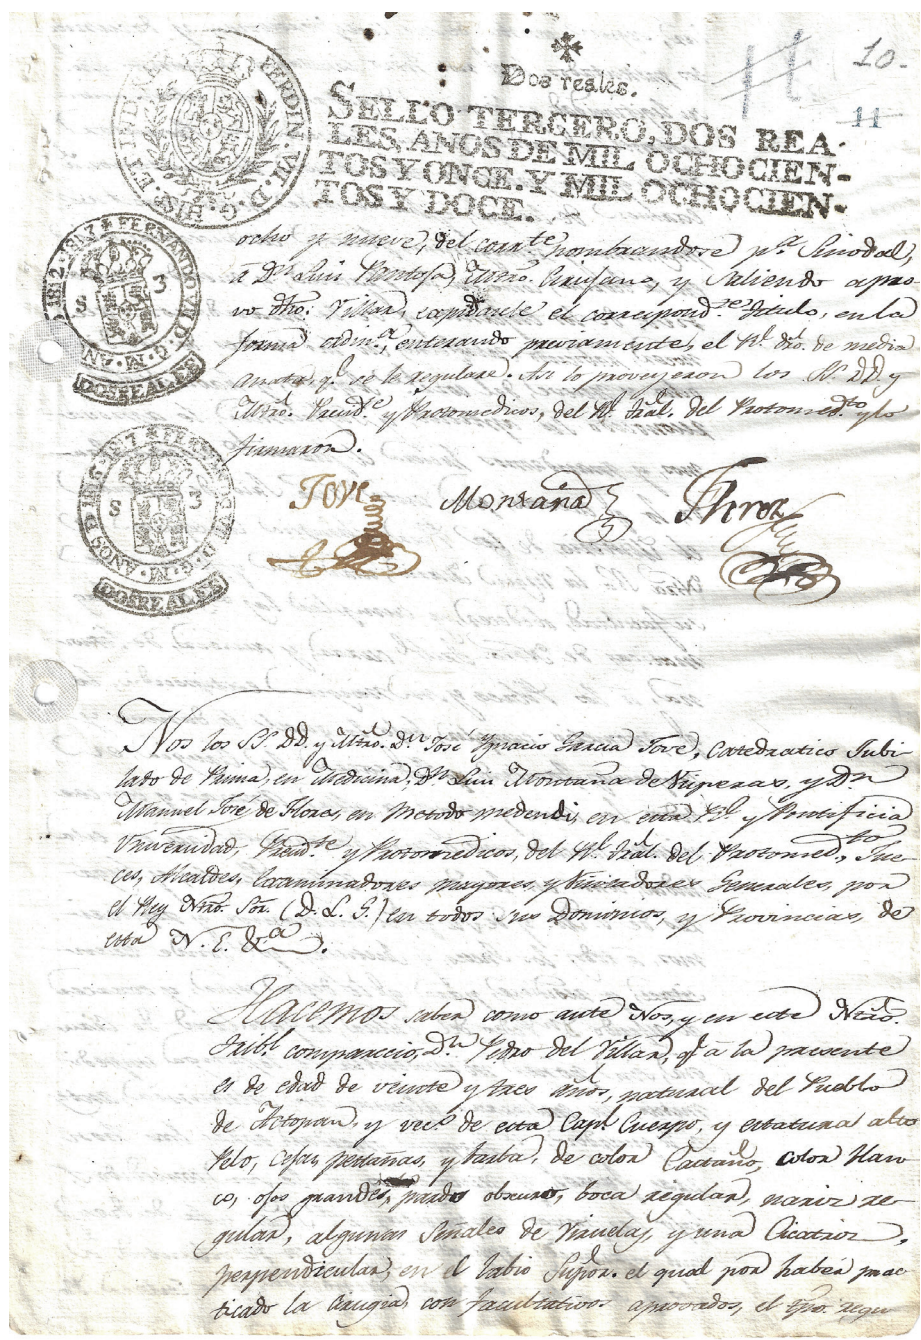 10.
11
Dos reales.
SELLO TERCERO, DOS REA-
LES, AÑOS DE MIL OCHOCIEN-
TOS Y ONCE. Y MIL OCHOCIEN-
TOS Y DOCE.
FERDIN. VII. D. G. HISP. ET IND. REX
FERNANDO VII D. G.
S 3
DOS REALES
S 3
DOS REALES
ocho y nueve, del corrte nombrandose pa. Sinodal,
á Dn Luis Mtro. Cirujano, y Saliendo apro
vo dho. Villar, expidasele el correspondte. titulo, en la
forma ordna. enterando previamente, el Rl. dro. de media
anata, q.e se le regulare. Asi lo proveyeron los SS. DD. y
Mtro. Presidte y Protomedicos, del Rl. Tral. del Protomedto. y lo
firmaron.
Tove
Montaña
Florez
Nos los SS. DD. y Mtro. Dn. José Ygnacio Garcia Jove, Catedratico Jubi
lado de Prima, en Medicina, Dn. Luis Montaña de y Dn
Manuel José de Flores, en Metodo medendi, en esta Rl. y Pontificia
Universidad, Presidte. y Protomedicos, del Rl. Tral. del Protomedto. Jue
ces, Alcaldes, Examinadores mayores, y Visitadores Generales, por
el Rey Ntro. Sor. (D. L. G.) en todos sus Dominios, y Provincias, de
esta N. E. &a.
Hacemos saber como ante Nos, y en este Ntro.
Tribl. comparecio, Dn Pedro del Villar, qe. á la presente
es de edad de veinte y tres años, natural del Pueblo
de Actopan, y veco. de esta Capl. Cuerpo, y estatura alto
Pelo, cejas, pestañas, y barba, de color Castaño, color Blan
co, ojos grandes, pardo obscuro, boca regular, nariz re
gular, algunas Señales de Viruelas, y una Cicatriz,
perpendicular, en el labio Supor. el qual por haber prac
ticado la cirugia, con facultativos aprovados, el tpo. requi